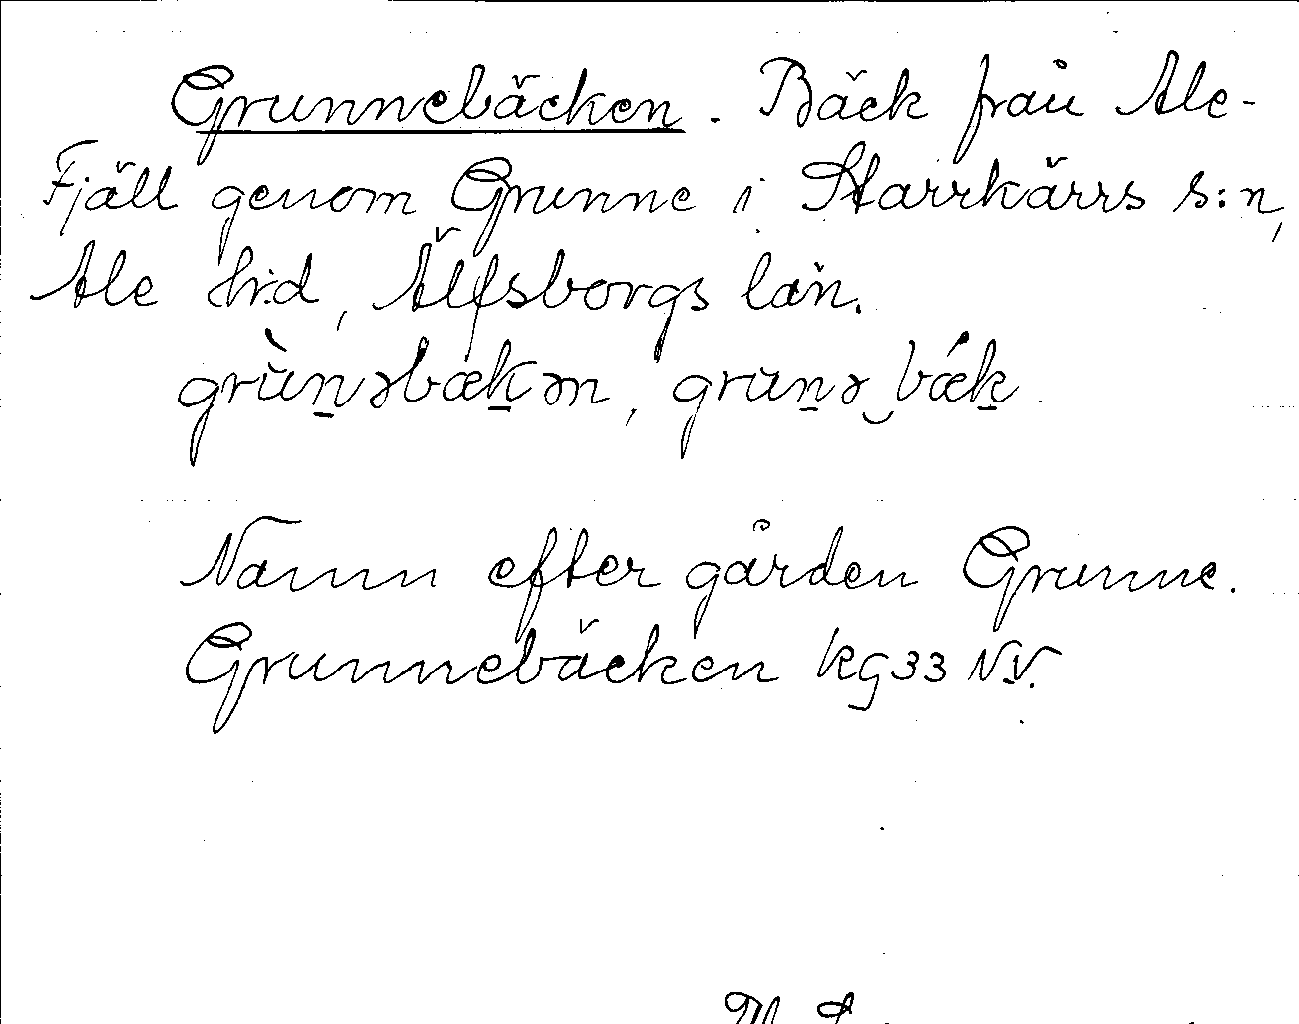 Grunnebäcken. Bäck från Ale-
Fjäll genom Grunne i Starrkärrs s:n,
Ale h:d, Älfsborgs län.
grùn̠əbæk̠ən, grun̠ə‿bǽk̠
Namn efter gården Grunne.
Grunnebäcken kg 33 NV.